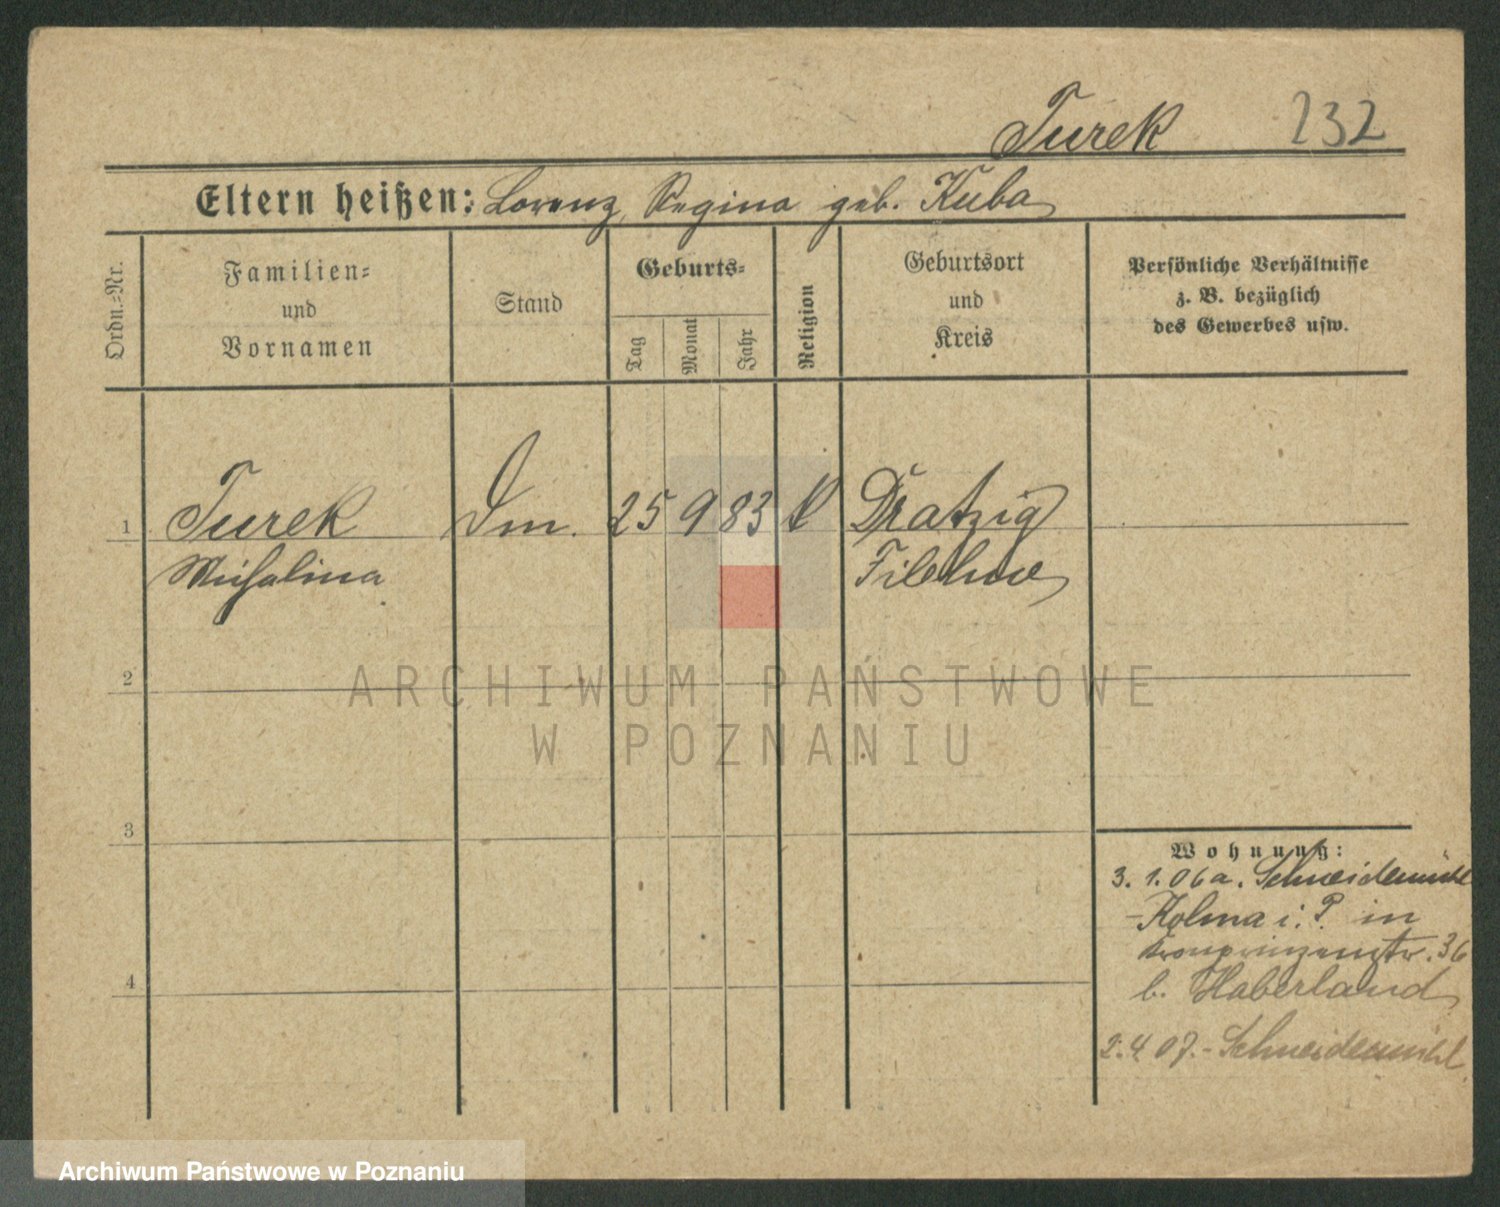 Turek 232
Eltern heißen: Lorenz, Regina geb. Kuba
Ordn.=Nr.
Familien=
und
Vornamen
Stand
Geburts=
Tag
Monat
Jahr
Religion
Geburtsort
und
Kreis
Persönliche Verhältnisse
z. B. bezüglich
des Gewerbes usw.
1 Turek Dm. 25 9 83 k Dratzig
Filehne
2
ARCHIWUM PAŃSTWOWE
W POZNANIU
3
4
Wohnung:
3. 1. 06 a. Schneidemühl
-Kolma i. P. in
Kronprinzenstr. 36
b. Haberland
2. 4. 07. - Schneidemühl
Archiwum Państwowe w Poznaniu